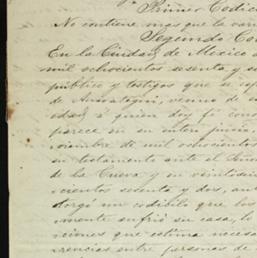 Primer Codici
No contiene mas que la var
Segundo Co
En la Ciudad de Mexico á
mil ochocientos sesenta y s
público y testigos que se es
de vecino de
edad, á quien doy fé cono
parece en su entero juicio
viembre de mil ochocientos
su testamento ante el Señor
de la Cueva y en veintidos
cientos sesenta y dos, ant
otorgó un codicilo que, los
mente sufrió su casa, lo
ciones que estima necesa
rencias entre personas de